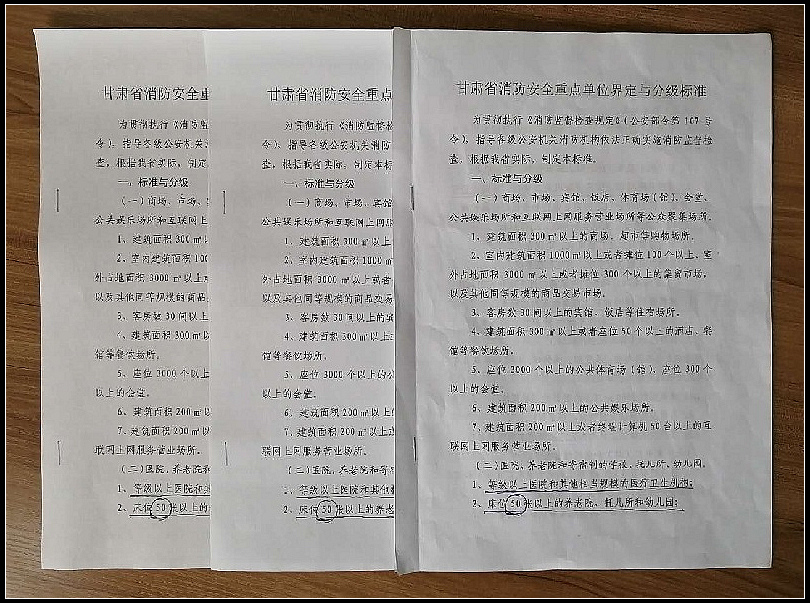 甘肃省消防安全重
为贯彻执行《消防监
令），指导各级公安机关
查，根据我省实际，制定
一、标准与分级
（一）商场、市场、
公共娱乐场所和互联网上
1、建筑面积300㎡以
2、室内建筑面积100
外占地面积3000㎡以上或
以及其他同等规模的商品
3、客房数30间以上
4、建筑面积300㎡以
馆等餐饮场所。
5、座位3000个以上
以上的会堂。
6、建筑面积200㎡以
7、建筑面积200㎡以
联网上网服务营业场所。
（二）医院、养老院和
1、等级以上医院和
2、床位50张以上的
甘肃省消防安全重点
为贯彻执行《消防监督检
令），指导各级公安机关消防
查，根据我省实际，制定本标
一、标准与分级
（一）商场、市场、宾馆
公共娱乐场所和互联网上网服
1、建筑面积300㎡以上
2、室内建筑面积1000㎡
外占地面积3000㎡以上或者
以及其他同等规模的商品交易
3、客房数30间以上的宾
4、建筑面积300㎡以上
馆等餐饮场所。
5、座位3000个以上的公
以上的会堂。
6、建筑面积200㎡以上的
7、建筑面积200㎡以上
联网上网服务营业场所。
（二）医院、养老院和寄
1、等级以上医院和其他
2、床位50张以上的养老
甘肃省消防安全重点单位界定与分级标准
为贯彻执行《消防监督检查规定》（公安部令第107号
令），指导各级公安机关消防机构依法正确实施消防监督检
查，根据我省实际，制定本标准。
一、标准与分级
（一）商场、市场、宾馆、饭店、体育场（馆）、会堂、
公共娱乐场所和互联网上网服务营业场所等公众聚集场所。
1、建筑面积300㎡以上的商场、超市等购物场所。
2、室内建筑面积1000㎡以上或者摊位100个以上，室
外占地面积3000㎡以上或者摊位300个以上的集贸市场，
以及其他同等规模的商品交易市场。
3、客房数30间以上的宾馆、饭店等住宿场所。
4、建筑面积300㎡以上或者座位50个以上的酒店、餐
馆等餐饮场所。
5、座位2000个以上的公共体育场（馆）、座位300个
以上的会堂。
6、建筑面积200㎡以上的公共娱乐场所。
7、建筑面积200㎡以上或者终端计算机50台以上的互
联网上网服务营业场所。
（二）医院、养老院和寄宿制的学校、托儿所、幼儿园。
1、等级以上医院和其他相当规模的医疗卫生机构；
2、床位50张以上的养老院、托儿所和幼儿园；